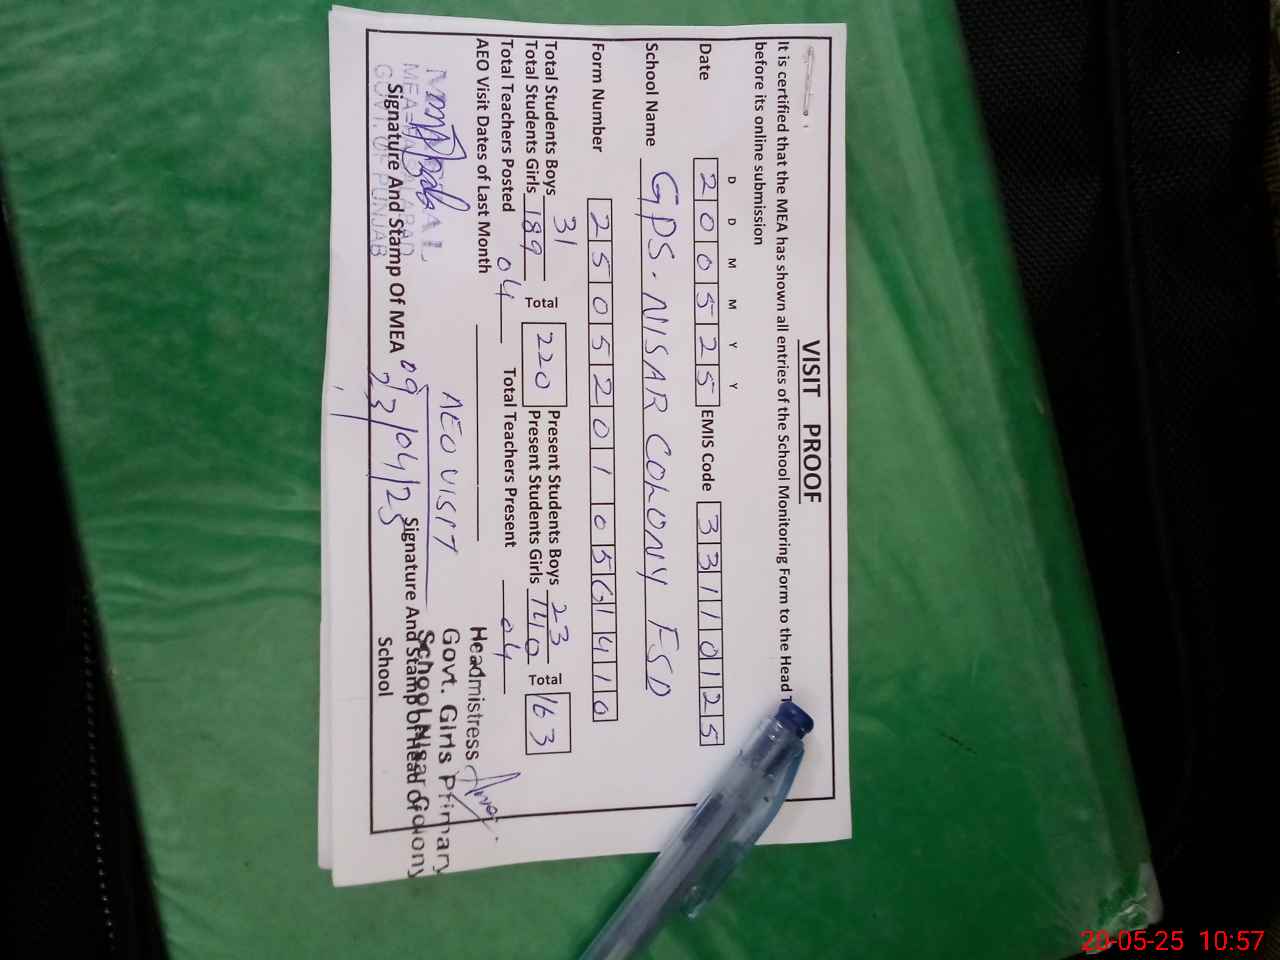 VISIT PROOF
It is certified that the MEA has shown all entries of the School Monitoring Form to the Head
before its online submission
D D M M Y Y
Date 200525 EMIS Code 33110125
School Name GPS. NISAR COLONY FSD
Form Number 2505201056410
Total Students Boys 31 Total 220 Present Students Boys 23 Total 163
Total Students Girls 189 Present Students Girls 140
Total Teachers Posted 04 Total Teachers Present 04
AEO Visit Dates of Last Month
AEO VISIT
09
23/04/25
GOVT. OF PUNJAB
Signature And Stamp Of MEA
Headmistress
Govt. Girls Primary
School Nisar Colony
Signature And Stamp of Head of
School
20-05-25 10:57